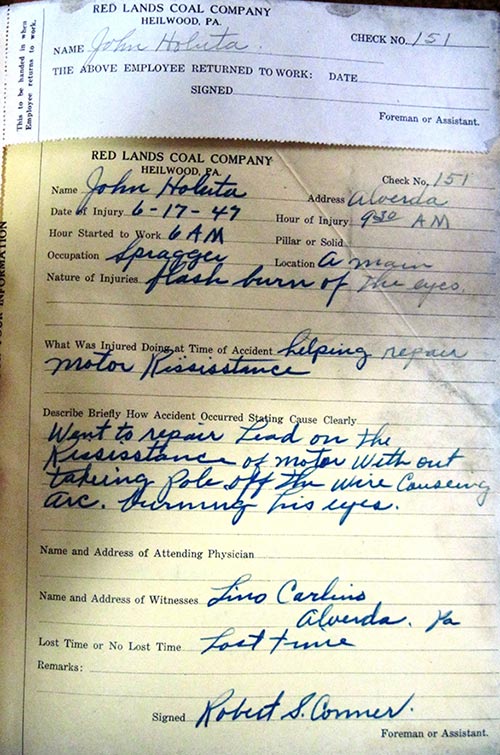 This to be handed in when
Employee returns to work.
RED LANDS COAL COMPANY
HEILWOOD, PA.
NAME John Holuta. CHECK NO. 151
THE ABOVE EMPLOYEE RETURNED TO WORK: DATE
SIGNED
Foreman or Assistant.
RED LANDS COAL COMPANY
HEILWOOD, PA.
Check No. 151
Name John Holuta Address Alverda
Date of Injury 6-17-47 Hour of Injury 9:30 AM
Hour Started to Work 6 AM Pillar or Solid
Occupation Spragger Location A main
Nature of Injuries flash burn of the eyes.
What Was Injured Doing at Time of Accident helping repair
motor Rississtance
Describe Briefly How Accident Occurred Stating Cause Clearly
Went to repair Lead on the
Rississtance of motor with out
taking Pole off the wire Causeing
arc. burning his eyes.
Name and Address of Attending Physician
Name and Address of Witnesses Lino Carlino
Alverda. Pa
Lost Time or No Lost Time Lost time
Remarks:
Signed Robert S. Conner.
Foreman or Assistant.
INFORMATION